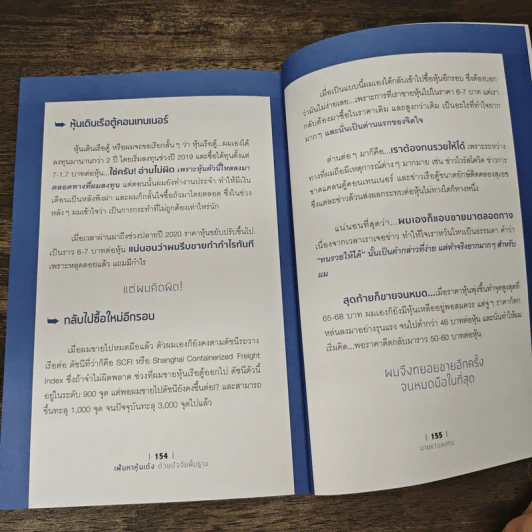 หุ้นเดินเรือตู้คอนเทนเนอร์
หุ้นเดินเรือตู้ หรือผมจะขอเรียกสั้นๆ ว่า หุ้นเรือตู้...ผมเองได้
ลงทุนมานานกว่า 2 ปี โดยเริ่มลงทุนช่วงปี 2019 และซื้อได้หุ้นตั้งแต่
7-1.7 บาทต่อหุ้น...ใช่ครับ! อ่านไม่ผิด เพราะหุ้นตัวนี้ไหลลงมา
ตลอดทางที่ผมลงทุน แต่ตอนนั้นผมยังทำงานประจำ ทำให้มีเงิน
เดือนเป็นหลังพิงฝา และผมก็กัดใจซื้อถัวมาโดยตลอด ซึ่งในช่วง
หลังๆ ผมเข้าใจว่า เป็นการกระทำที่ไม่ถูกต้องเท่าไหร่นัก
เมื่อเวลาผ่านมาถึงช่วงปลายปี 2020 ราคาหุ้นขยับปรับขึ้นไป
เป็นราว 6-7 บาทต่อหุ้น แน่นอนว่าผมรีบขายทำกำไรทันที
เพราะหลุดดอยแล้ว แถมมีกำไร
แต่ผมคิดผิด!
กลับไปซื้อใหม่อีกรอบ
เมื่อผมขายไปหมดมือแล้ว ตัวผมเองก็ยังคงตามดัชนีระวาง
เรือต่อ ดัชนีที่ว่าก็คือ SCFI หรือ Shanghai Containerized Freight
Index ซึ่งถ้าจำไม่ผิดพลาด ช่วงที่ผมขายหุ้นเรือตู้ออกไป ดัชนีตัวนี้
อยู่ในระดับ 900 จุด แต่พอผมขายไปดัชนียังขึ้นต่อไป! และสามารถ
ขึ้นทะลุ 1,000 จุด จนปัจจุบันทะลุ 3,000 จุดไปแล้ว
| 154 |
เฟ้นหาหุ้นเด้ง ด้วยปัจจัยพื้นฐาน
เมื่อเป็นแบบนี้ผมเองได้กลับเข้าไปซื้อหุ้นอีกรอบ ซึ่งต้องบอก
ว่ามันไม่ง่ายเลย...เพราะการที่เราขายหุ้นไปในราคา 6-7 บาท แต่เรา
กลับต้องมาซื้อในราคาเดิม และสูงกว่าเดิม เป็นอะไรที่ทำใจยาก
มากๆ และนั่นเป็นด่านแรกของจิตใจ
ด่านต่อๆ มาก็คือ...เราต้องทนรวยให้ได้ เพราะระหว่าง
ทางที่ผมถือมีเหตุการณ์ต่างๆ มากมาย เช่น ข่าวไวรัสโควิด ข่าวการ
ขาดแคลนตู้คอนเทนเนอร์ และข่าวเรือตู้ขนาดยักษ์ติดคลองสุเอซ
ซึ่งแต่ละข่าวล้วนส่งผลกระทบต่อหุ้นไม่ทางใดก็ทางหนึ่ง
แน่นอนที่สุดว่า...ผมเองก็แอบขายมาตลอดทาง
เนื่องจากเวลาเราเจอข่าว ทำให้ใจเราหวั่นไหวเป็นธรรมดา คำว่า
“ทนรวยให้ได้” นั้นเป็นคำกล่าวที่ง่าย แต่ทำจริงยากมากๆ สำหรับ
ผม
สุดท้ายก็ขายจนหมด...เมื่อราคาหุ้นพุ่งขึ้นทำจุดสูงสุดที่
65-68 บาท ผมเองก็ยังมีหุ้นเหลืออยู่พอสมควร แต่จู่ๆ ราคาก็ตก
หล่นลงมาอย่างรุนแรง จนไปต่ำกว่า 46 บาทต่อหุ้น และนั่นทำให้ผม
เริ่มคิด...พอราคาดีดกลับมาราว 50-60 บาทต่อหุ้น
ผมจึงทยอยขายอีกครั้ง
จนหมดมือในที่สุด
| 155 |
นายแว่นลงทุน